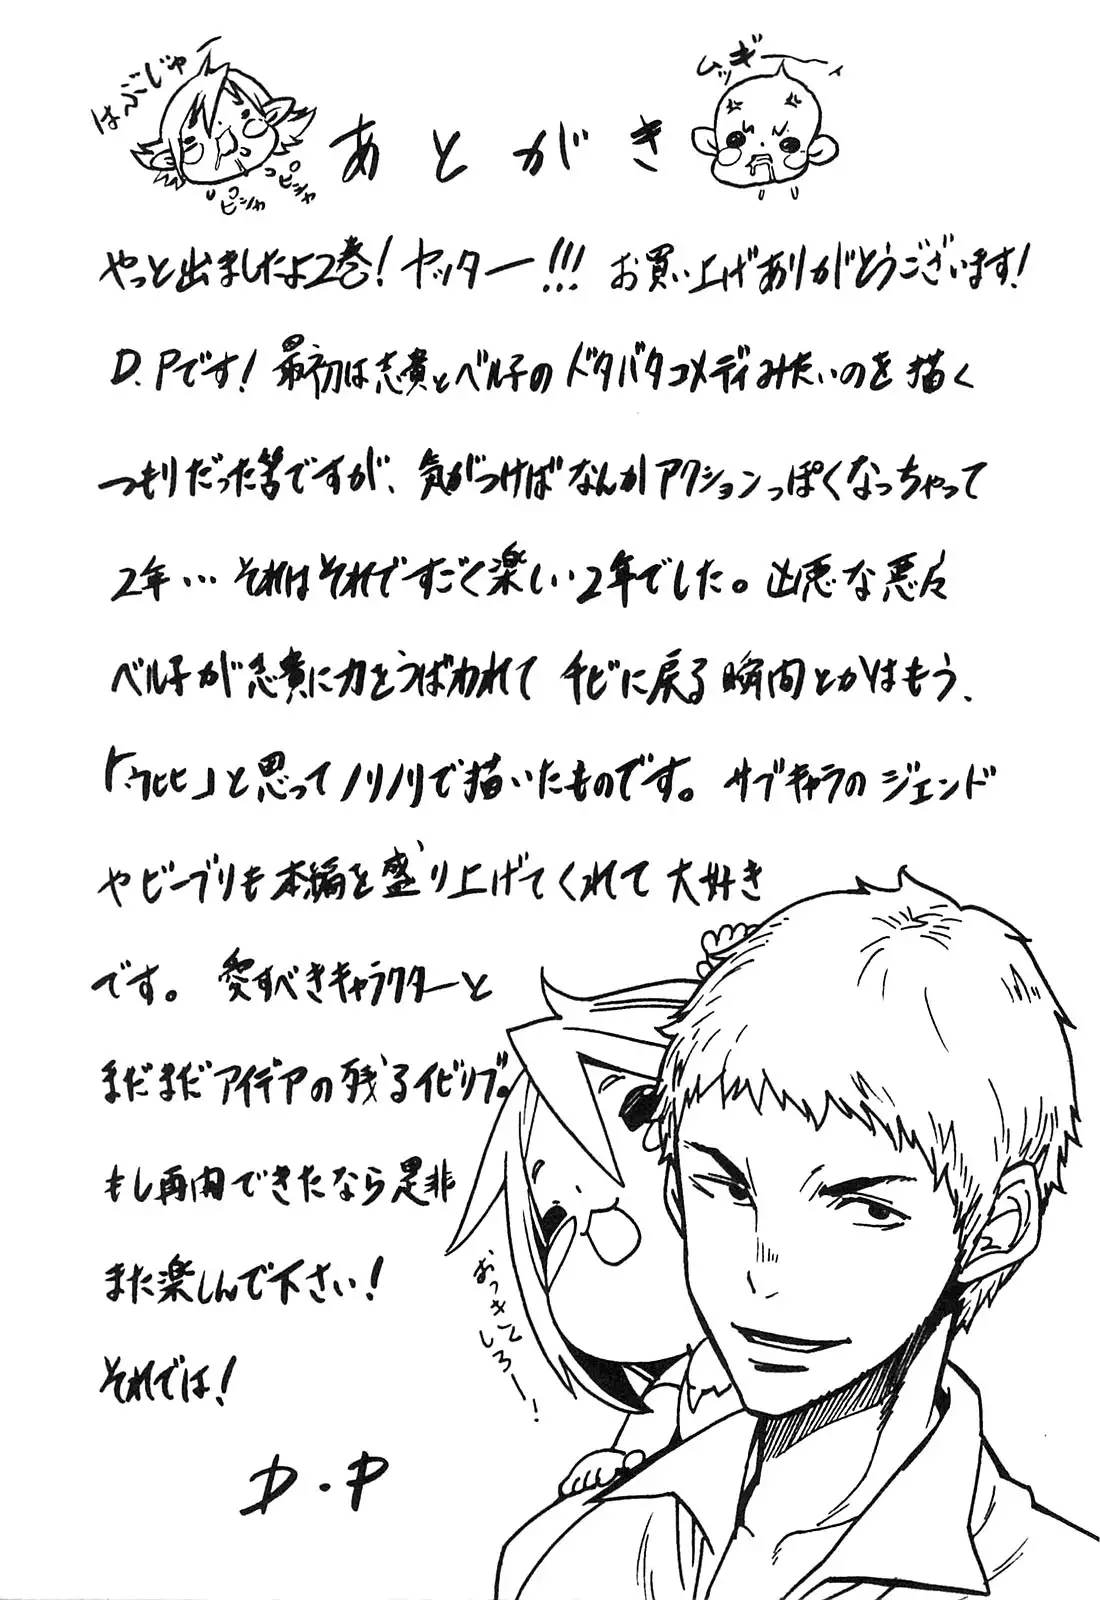 はぶじゃー
ムッギーーィ
ピシャ
ピシャ
あとがき
やっと出ましたよ2巻!ヤッター!!!お買い上げありがとうございます!
D.Pです!最初は志貴とベル子のドタバタコメディみたいのを描く
つもりだった筈ですが、気がつけばなんかアクションっぽくなっちゃって
2年…それはそれですごく楽しい2年でした。凶悪な悪々
ベル子が志貴に力をうばわれてチビに戻る瞬間とかはもう、
「ウヒヒ」と思ってノリノリで描いたものです。サブキャラのジェンド
やビーブリも本編を盛り上げてくれて大好き
です。愛すべきキャラクターと
まだまだアイデアの残るイビリブ。
もし再開できたなら是非
また楽しんで下さい!
それでは!
D.P
おっきく
しろー!